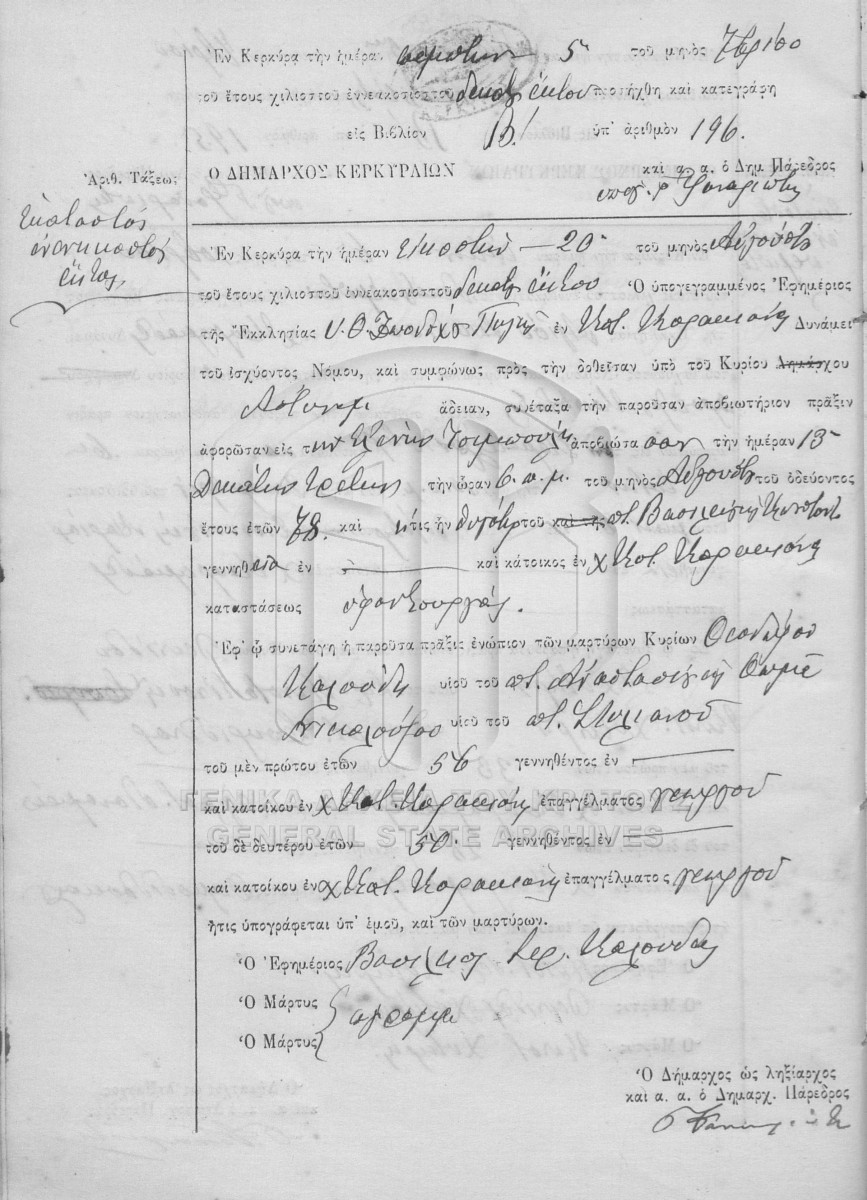 Ἐν Κερκύρᾳ τὴν ἡμέραν πέμπτην 5 τοῦ μηνὸς 7βρίου
τοῦ ἔτους χιλιοστοῦ ἐννεακοσιοστοῦ δεκάτου ἕκτου προσήχθη καὶ κατεγράφη
εἰς Βιβλίον Β! ὑπ' ἀριθμὸν 196.
Ἀριθ. Τάξεως
Ο ΔΗΜΑΡΧΟΣ ΚΕΡΚΥΡΑΙΩΝ
καὶ α. α. ὁ Δημ Πάρεδρος
Ἑκατοστὸς
ἐνενηκοστὸς
ἕκτος
Ἐν Κερκύρᾳ τὴν ἡμέραν εἰκοστὴν — 20 τοῦ μηνὸς Αὐγούστου
τοῦ ἔτους χιλιοστοῦ ἐννεακοσιοστοῦ δεκάτου ἕκτου Ὁ ὑπογεγραμμένος Ἐφημέριος
τῆς Ἐκκλησίας Υ. Θ. Ζωοδόχου Πηγῆς ἐν Κάτ. Κορακιάνᾳ Δυνάμει
τοῦ ἰσχύοντος Νόμου, καὶ συμφώνως πρὸς τὴν δοθεῖσαν ὑπὸ τοῦ Κυρίου Δημάρχου
ἄδειαν, συνέταξα τὴν παροῦσαν ἀποβιωτήριον πρᾶξιν
ἀφορῶσαν εἰς τὴν Ἑλένην ἀποβιώσασαν τὴν ἡμέραν 13
Δεκάτην τρίτην τὴν ὥραν 6. π. μ. τοῦ μηνὸς Αὐγούστου τοῦ ὁδεύοντος
ἔτους ἐτῶν 78. καὶ ἥτις ἦν θυγάτηρ τοῦ καὶ τῆς ποτ. Βασιλείου
γεννηθεῖσα ἐν — καὶ κάτοικος ἐν χ Κάτ. Κορακιάνᾳ
καταστάσεως ὑφαντουργός.
Ἐφ' ᾧ συνετάγη ἡ παροῦσα πρᾶξις ἐνώπιον τῶν μαρτύρων Κυρίων Θεοδώρου
Καλούδη υἱοῦ τοῦ ποτ. Ἀναστασίου
υἱοῦ τοῦ ποτ. Στυλιανοῦ
τοῦ μὲν πρώτου ἐτῶν 56 γεννηθέντος ἐν —
καὶ κατοίκου ἐν χ Κάτ. Κορακιάνᾳ ἐπαγγέλματος γεωργοῦ
ΓΕΝΙΚΑ ΑΡΧΕΙΑ ΤΟΥ ΚΡΑΤΟΥΣ
GENERAL STATE ARCHIVES
τοῦ δὲ δευτέρου ἐτῶν 50. γεννηθέντος ἐν —
καὶ κατοίκου ἐν χ Κάτ. Κορακιάνᾳ ἐπαγγέλματος γεωργοῦ
ἥτις ὑπογράφεται ὑπ' ἐμοῦ, καὶ τῶν μαρτύρων.
Ὁ Ἐφημέριος Βασίλειος ἱερ. Καλούδης
Ὁ Μάρτυς ἀγράμμ
Ὁ Μάρτυς
Ὁ Δήμαρχος ὡς ληξίαρχος
καὶ α. α. ὁ Δημαρχ. Πάρεδρος